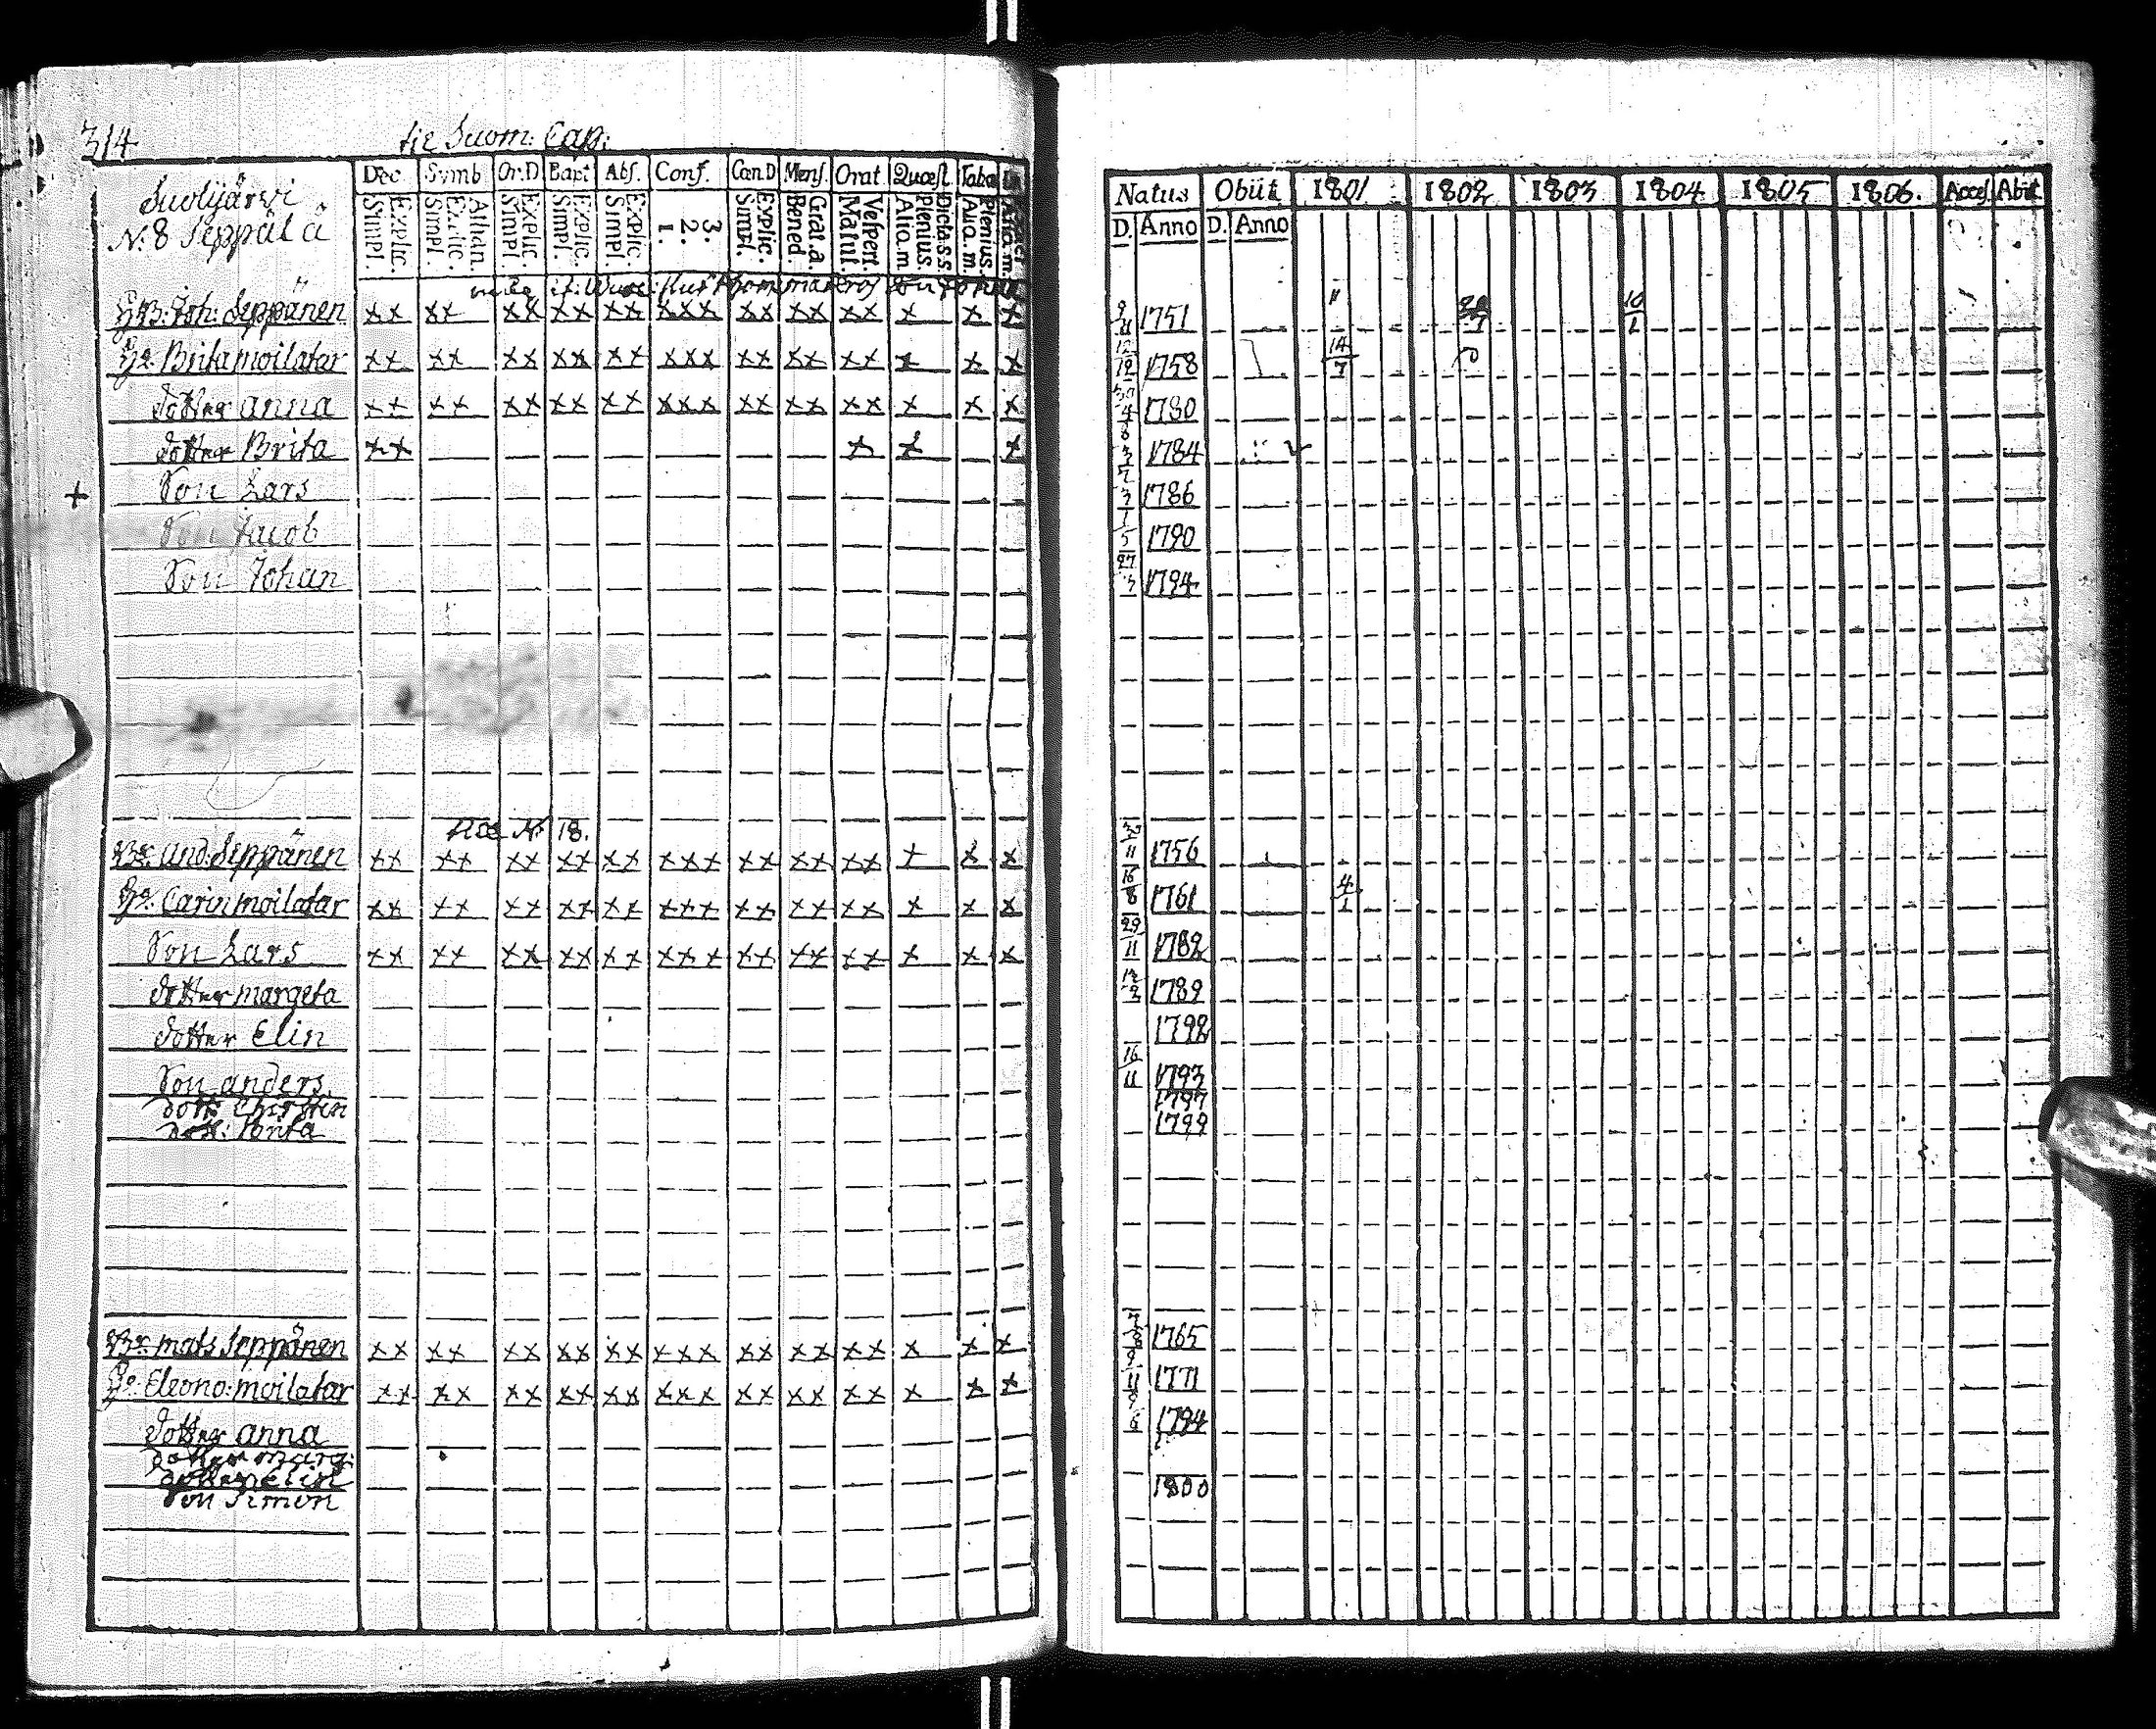 314 til Suom: Cap:
Suolijärvi
N: 8 Seppälä
Dec. Symb. Or.D. Bapt. Abs. Conf. Cœn.D Mens. Orat. Quæst. Taba
Explic. Simpl. Athan. Explic. Simpl. Explic. Simpl. Explic. Simpl. Explic. Simpl. 3. 2. 1. Explic. Simpl. Grat. a. Bened Vespert. Matut. Dicta s.s. Plenius. Alia.m. Plenius. Alia.m.
Natus Obiit 1801 1802 1803 1804 1805 1806. Acces. Abiit
D. Anno D. Anno
Joh: Seppänen xx xx xx xx xx xxx xx xx xx x x x 9/11 1751 10/1
Brita moilatar xx xx xx xx xx xxx xx xx xx x x x 1758 14/7
dotter anna xx xx xx xx xx xxx xx xx xx x x x 30/4 1780
dotter Brita xx x x x 6/3 1784
+ Son Lars 1786
Son Jacob 1/5 1790
Son Johan 27/3 1794
N: 18.
And: Seppänen xx xx xx xx xx xxx xx xx xx x x x 1756
Carin moilatar xx xx xx xx xx xxx xx xx xx x x x 16/8 1761 4/1
Son Lars xx xx xx xx xx xxx xx xx xx x x x 29/11 1782
dotter margeta 1789
dotter Elin 1792
Son anders. 16/11 1793
dott: Christin 1797
dott: Brita 1799
mats Seppänen xx xx xx xx xx xxx xx xx xx x x x 1765
Eleono: moilatar xx xx xx xx xx xxx xx xx xx x x x 9/11 1771
dotter anna 9/6 1794
dotter marg:
dotter elin
Son Simon 1800